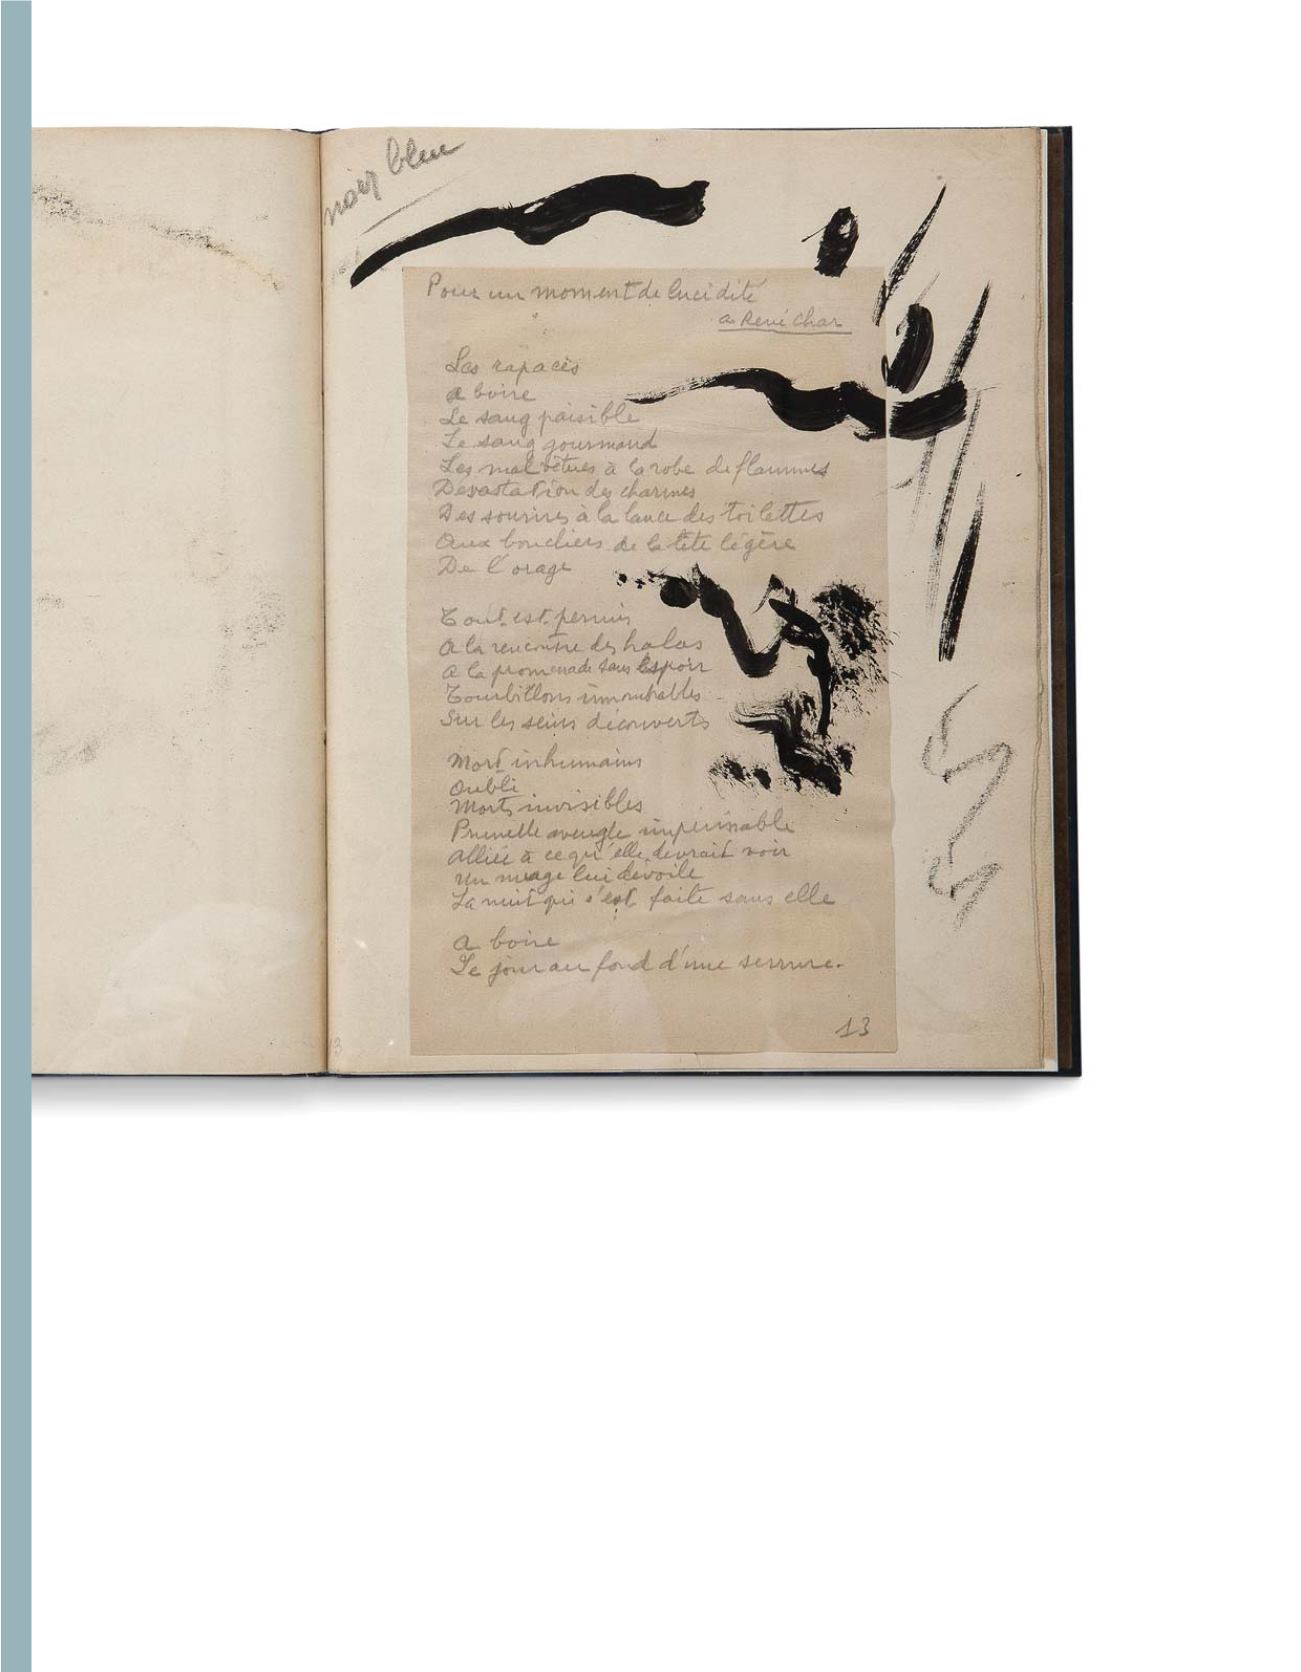 noir bleu
Pour un moment de lucidité
a René Char
Les rapaces
a boire
Le sang paisible
Le sang gourmand
Les mal vêtues à la robe de flammes
Devastation des charmes
Des sourires à la lance des toilettes
Aux boucliers de la tête légère
De l'orage
Tout est permis
A la rencontre des halos
A la promenade sans espoir
Tourbillons immuables
Sur les seins découverts
Mort inhumains
Oubli
Morts invisibles
Prunelle aveugle impérissable
Alliée à ce qu'elle devrait voir
Un nuage lui dévoile
La nuit qui s'est faite sans elle
A boire
Le jour au fond d'une serrure.
13